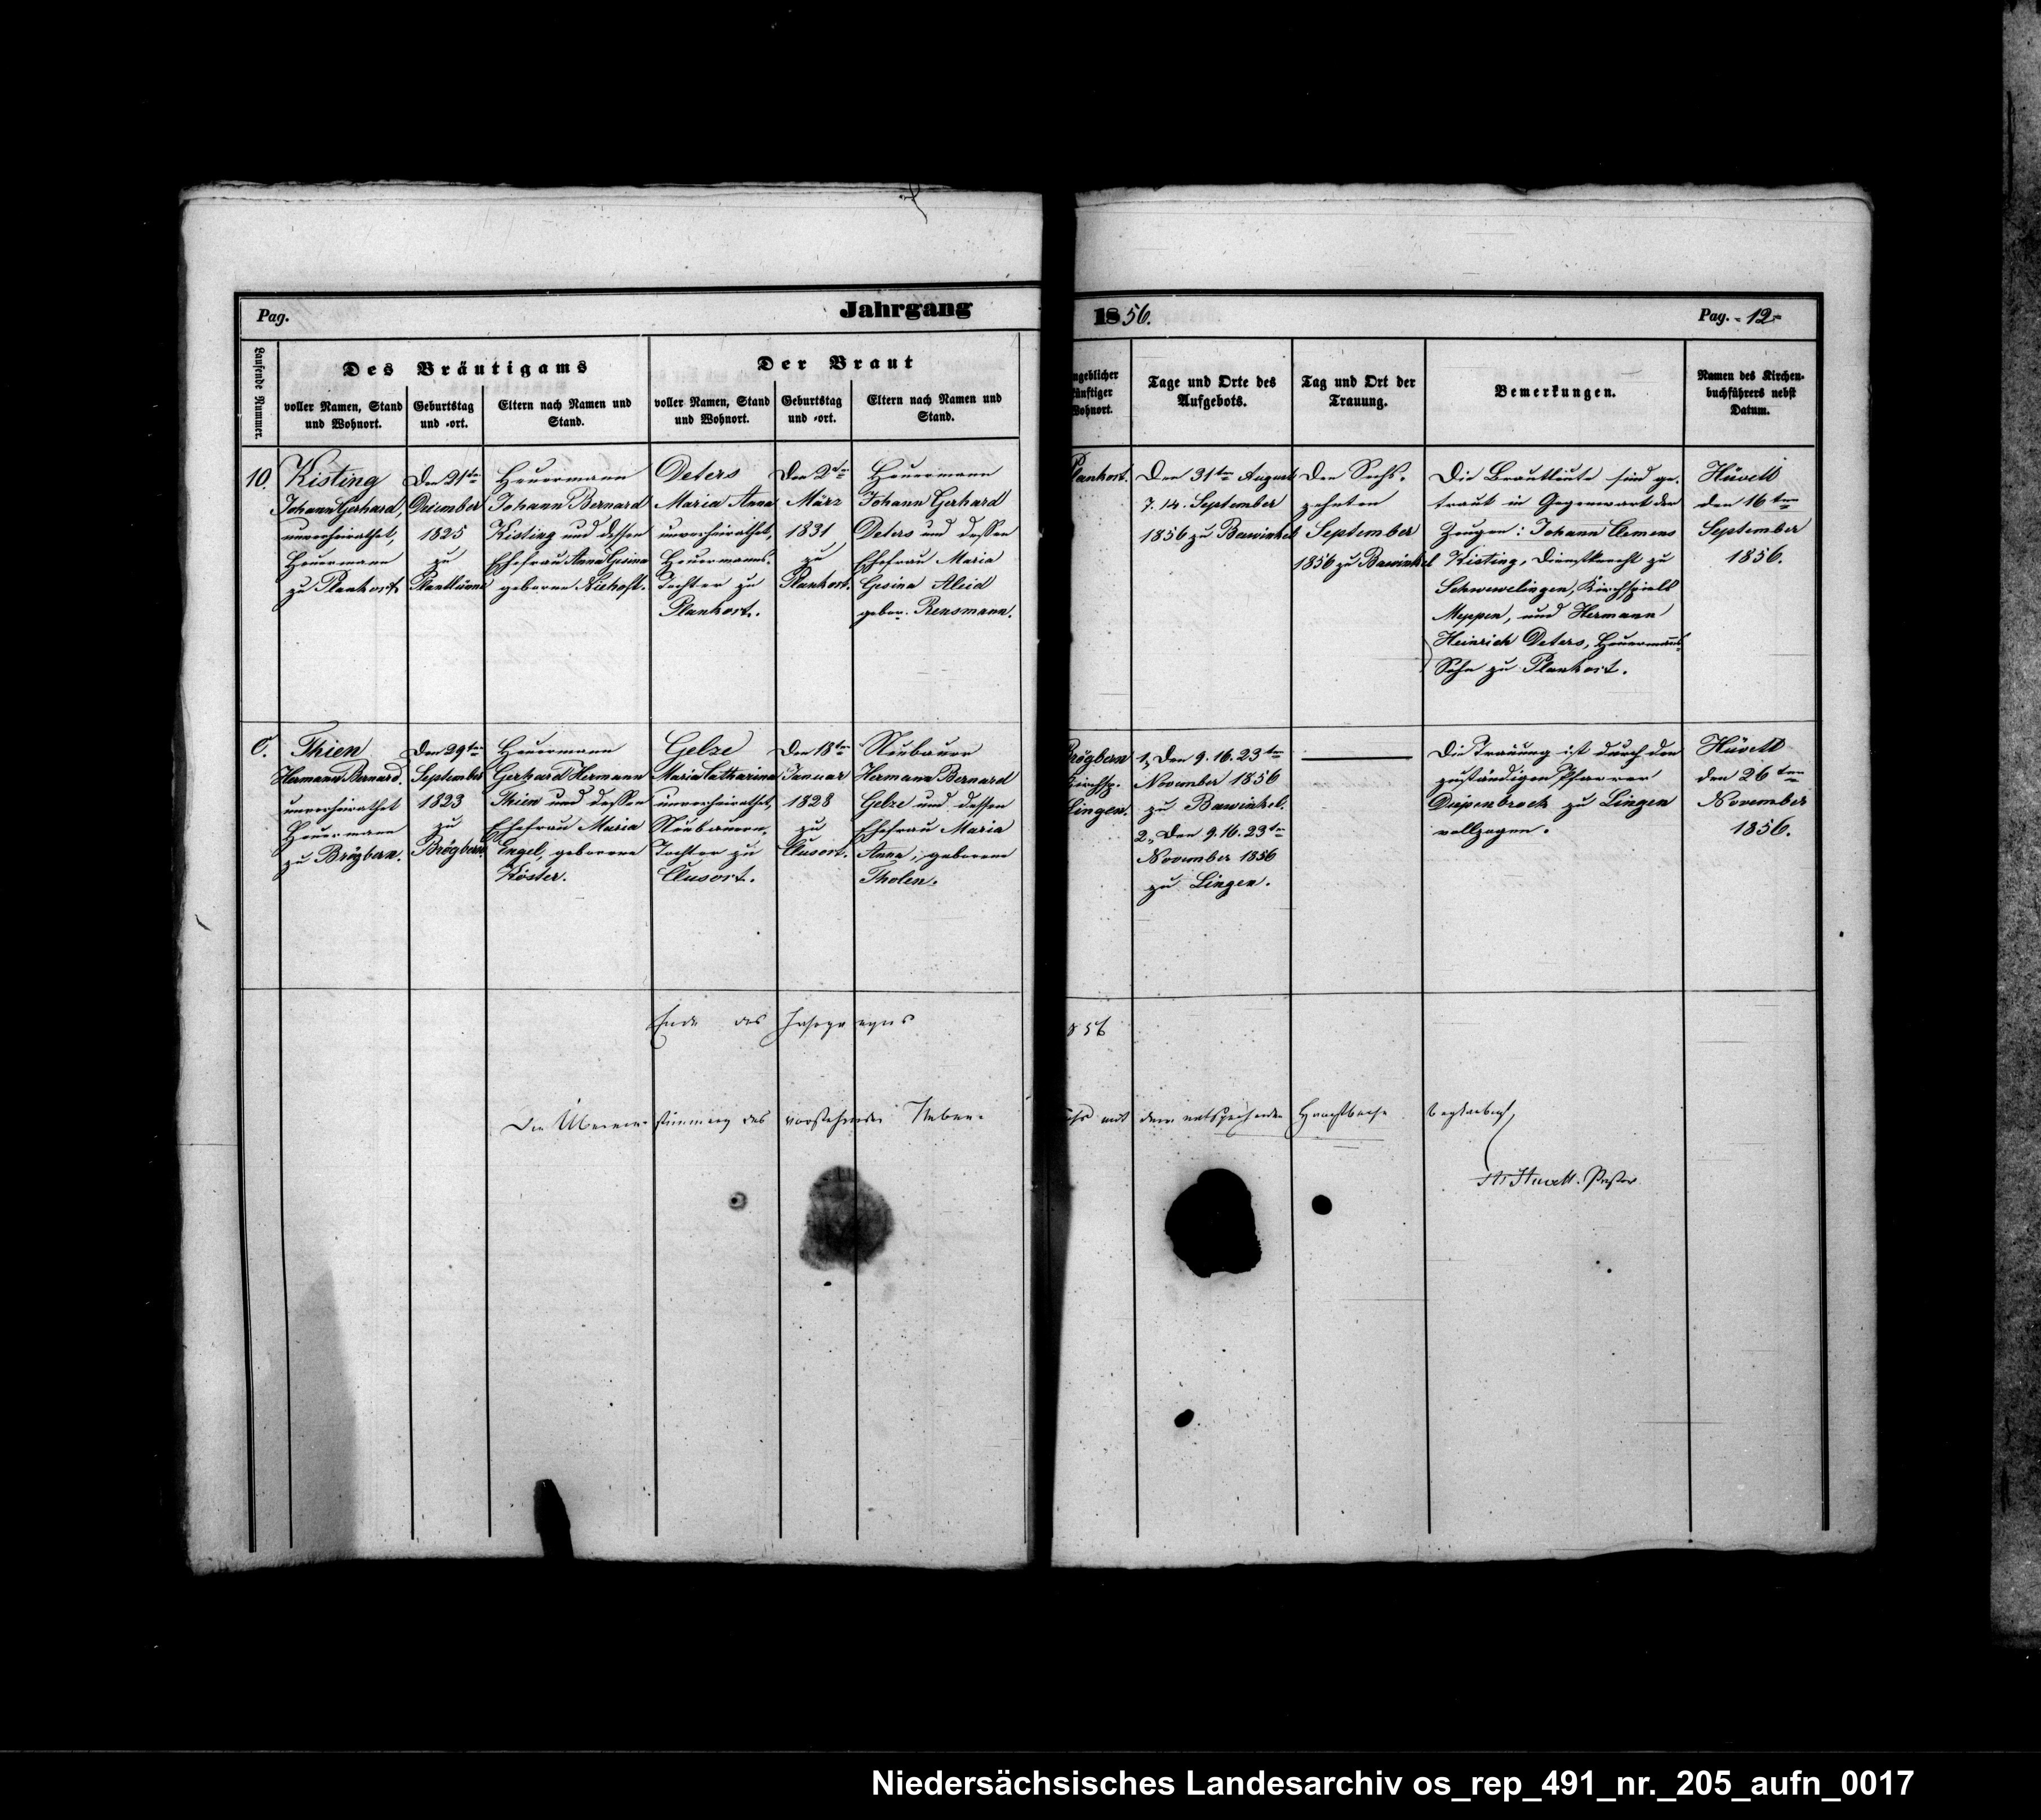 Pag.
Jahrgang
1856.
Pag. - 12 -
Laufende Nummer.
Des Bräutigams
Der Braut
voller Namen, Stand
und Wohnort.
Geburtstag
und -ort.
Eltern nach Namen und
Stand.
voller Namen, Stand
und Wohnort.
Geburtstag
und -ort.
Eltern nach Namen und
Stand.
ngeblicher
künftiger
Wohnort.
Tage und Orte des
Aufgebots.
Tag und Ort der
Trauung.
Bemerkungen.
Namen des Kirchen-
buchführers nebst
Datum.
10.
Kisting
Johann Gerhard,
unverheirathet,
Heuermann
zu Plankort.
Den 21ten
Dezember
1825
zu
Heuermann
Johann Bernard
Kisting und dessen
Ehefrau Anna Gesina
geborne Niehoff.
Deters
Maria Anna
unverheirathet,
Heuermanns-
Tochter zu
Plankort.
Den 2ten
März
1831
zu
Plankort.
Heuermann
Johann Gerhard
Deters und dessen
Ehefrau Maria
Gesina Aleid
gebor. Rensmann.
Plankort.
Den 31ten August
7. 14. September
1856 zu Bawinkel
Den Sechs-
zehnten
September
1856 zu Bawinkel
Die Brautleute sind ge-
traut in Gegenwart der
Zeugen: Johann Clemens
Kisting, Dienstknecht zu
Schwewelingen, Kirchspiels
Meppen, und Hermann
Heinrich Deters, Heuermanns-
Sohn zu Plankort.
Hüvett
den 16ten
September
1856.
0.
Thien
Hermann Bernard.
unverheirathet
Heuermann
zu Brögbern.
Den 29ten
September
1823
zu
Brögbern.
Heuermann
Gerhard Hermann
Thien und dessen
Ehefrau Maria
Engel, geborene
Köster.
Gelze
Maria Catharina
unverheirathet,
Neubauern-
Tochter zu
Clusort.
Den 18ten
Januar
1828
zu
Clusort.
Neubauer
Hermann Bernard
Gelze und dessen
Ehefrau Maria
Anna, geborene
Tholen.
Brögbern
Kirchsp.
Lingen.
1, Den 9. 16. 23ten
November 1856
zu Bawinkel.
2, Den 9. 16. 23ten
November 1856
zu Lingen.
Die Trauung ist durch den
zuständigen Pfarrer
Diepenbrock zu Lingen
vollzogen.
Hüvett
den 26ten
November
1856.
Ende des Jahrganges
856
Die Übereinstimmung des vorstehenden Neben-
mit dem entsprechenden Hauptbuche beglaubigt,
Huvett. Pastor
Niedersächsisches Landesarchiv os_rep_491_nr._205_aufn_0017